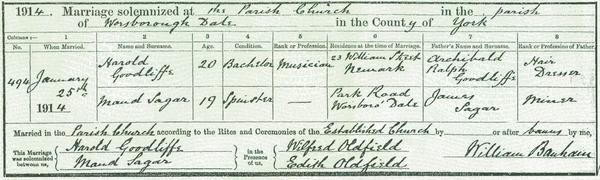 1914. Marriage solemnized at the Parish Church in the parish
of Worsborough Dale in the County of York
Columns:— 1 2 3 4 5 6 7 8
No. When Married. Name and Surname. Age. Condition. Rank or Profession. Residence at the time of Marriage. Father's Name and Surname. Rank or Profession of Father.
494 January 25th 1914 Harold Goodliffe 20 Bachelor Musician 23 William Street Newark Archibald Ralph Goodliffe Hair Dresser
Maud Sagar 19 Spinster — Park Road Worsboro' Dale James Sagar Miner
Married in the Parish Church according to the Rites and Ceremonies of the Established Church by or after banns by me,
This Marriage was solemnized between us, Harold Goodliffe Maud Sagar in the Presence of us, Wilfred Oldfield Edith Oldfield William Banham